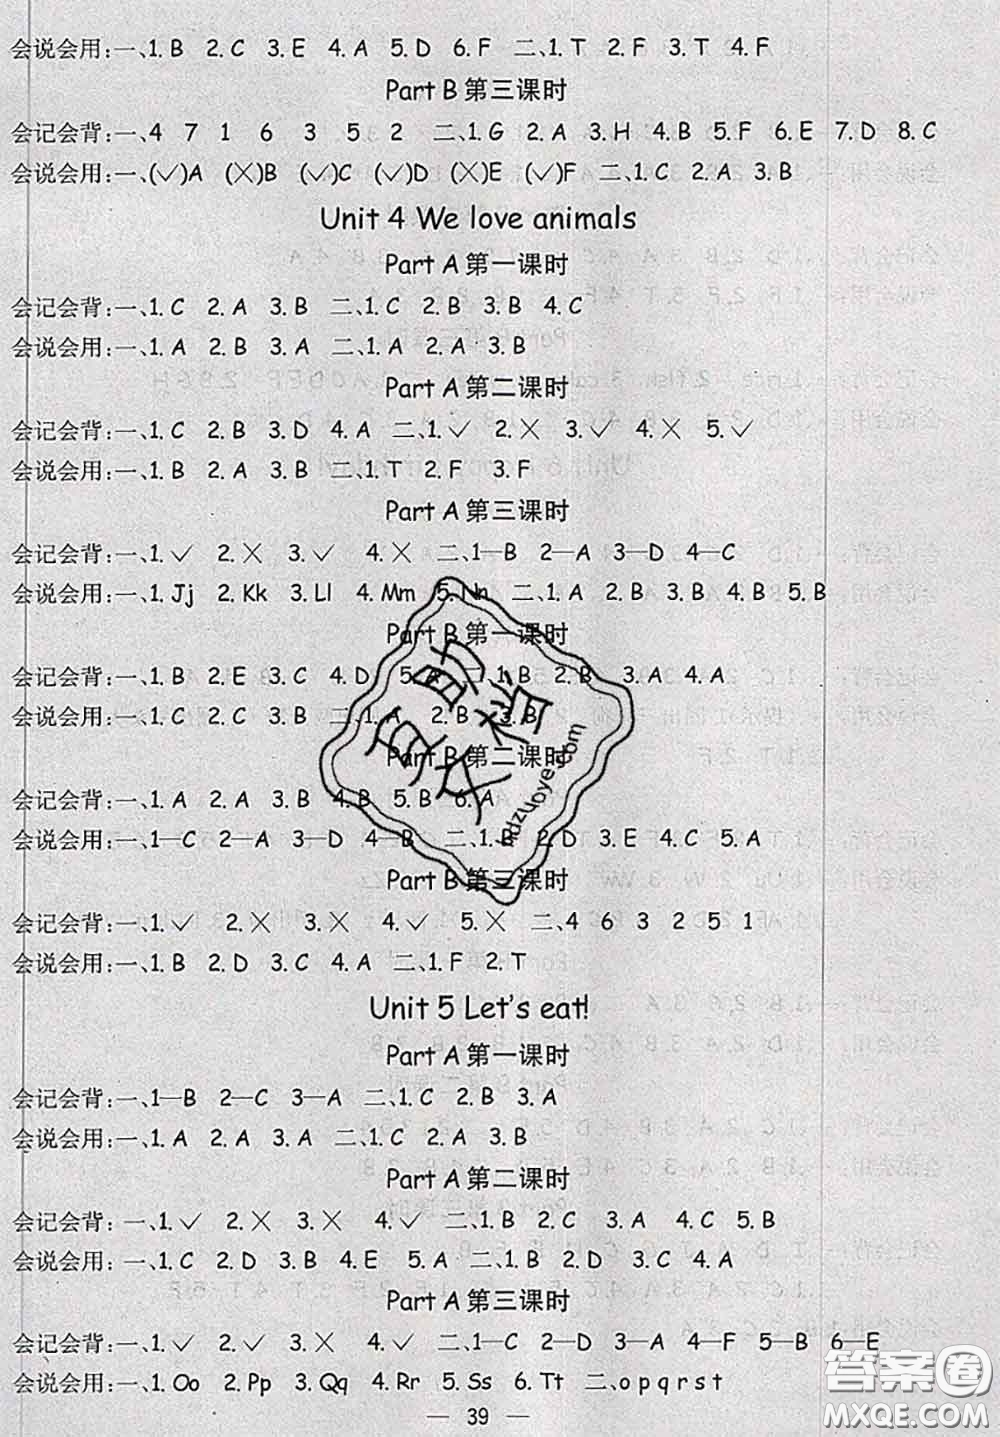 会说会用:一、1. B 2. C 3. E 4. A 5. D 6. F 二、1. T 2. F 3. T 4. F
Part B 第三课时
会记会背:一、4 7 1 6 3 5 2 二、1. G 2. A 3. H 4. B 5. F 6. E 7. D 8. C
会说会用:一、(✓)A (✕)B (✓)C (✓)D (✕)E (✓)F 二、1. C 2. A 3. B
Unit 4 We love animals
Part A 第一课时
会记会背:一、1. C 2. A 3. B 二、1. C 2. B 3. B 4. C
会说会用:一、1. A 2. B 3. A 二、1. A 2. A 3. B
Part A 第二课时
会记会背:一、1. C 2. B 3. D 4. A 二、1. ✓ 2. ✕ 3. ✓ 4. ✕ 5. ✓
会说会用:一、1. B 2. A 3. B 二、1. T 2. F 3. F
Part A 第三课时
会记会背:一、1. ✓ 2. ✕ 3. ✓ 4. ✕ 二、1—B 2—A 3—D 4—C
会说会用:一、1. Jj 2. Kk 3. Ll 4. Mm 5. Nn 二、1. A 2. B 3. B 4. B 5. B
Part B 第一课时
会记会背:一、1. B 2. E 3. C 4. D 5. A 二、1. B 2. B 3. A 4. A
会说会用:一、1. C 2. C 3. B 二、1. A 2. B 3. B
Part B 第二课时
会记会背:一、1. A 2. A 3. B 4. B 5. B 6. A
会说会用:一、1—C 2—A 3—D 4—B 二、1. B 2. D 3. E 4. C 5. A
Part B 第三课时
会记会背:一、1. ✓ 2. ✕ 3. ✕ 4. ✓ 5. ✕ 二、4 6 3 2 5 1
会说会用:一、1. B 2. D 3. C 4. A 二、1. F 2. T
Unit 5 Let's eat!
Part A 第一课时
会记会背:一、1—B 2—C 3—A 二、1. C 2. B 3. A
会说会用:一、1. A 2. A 3. A 二、1. C 2. A 3. B
Part A 第二课时
会记会背:一、1. ✓ 2. ✕ 3. ✕ 4. ✓ 二、1. B 2. C 3. A 4. C 5. B
会说会用:一、1. C 2. D 3. B 4. E 5. A 二、1. B 2. D 3. C 4. A
Part A 第三课时
会记会背:一、1. ✓ 2. ✓ 3. ✕ 4. ✓ 二、1—C 2—D 3—A 4—F 5—B 6—E
会说会用:一、1. Oo 2. Pp 3. Qq 4. Rr 5. Ss 6. Tt 二、o p q r s t
— 39 —
答案圈
MXQE.COM